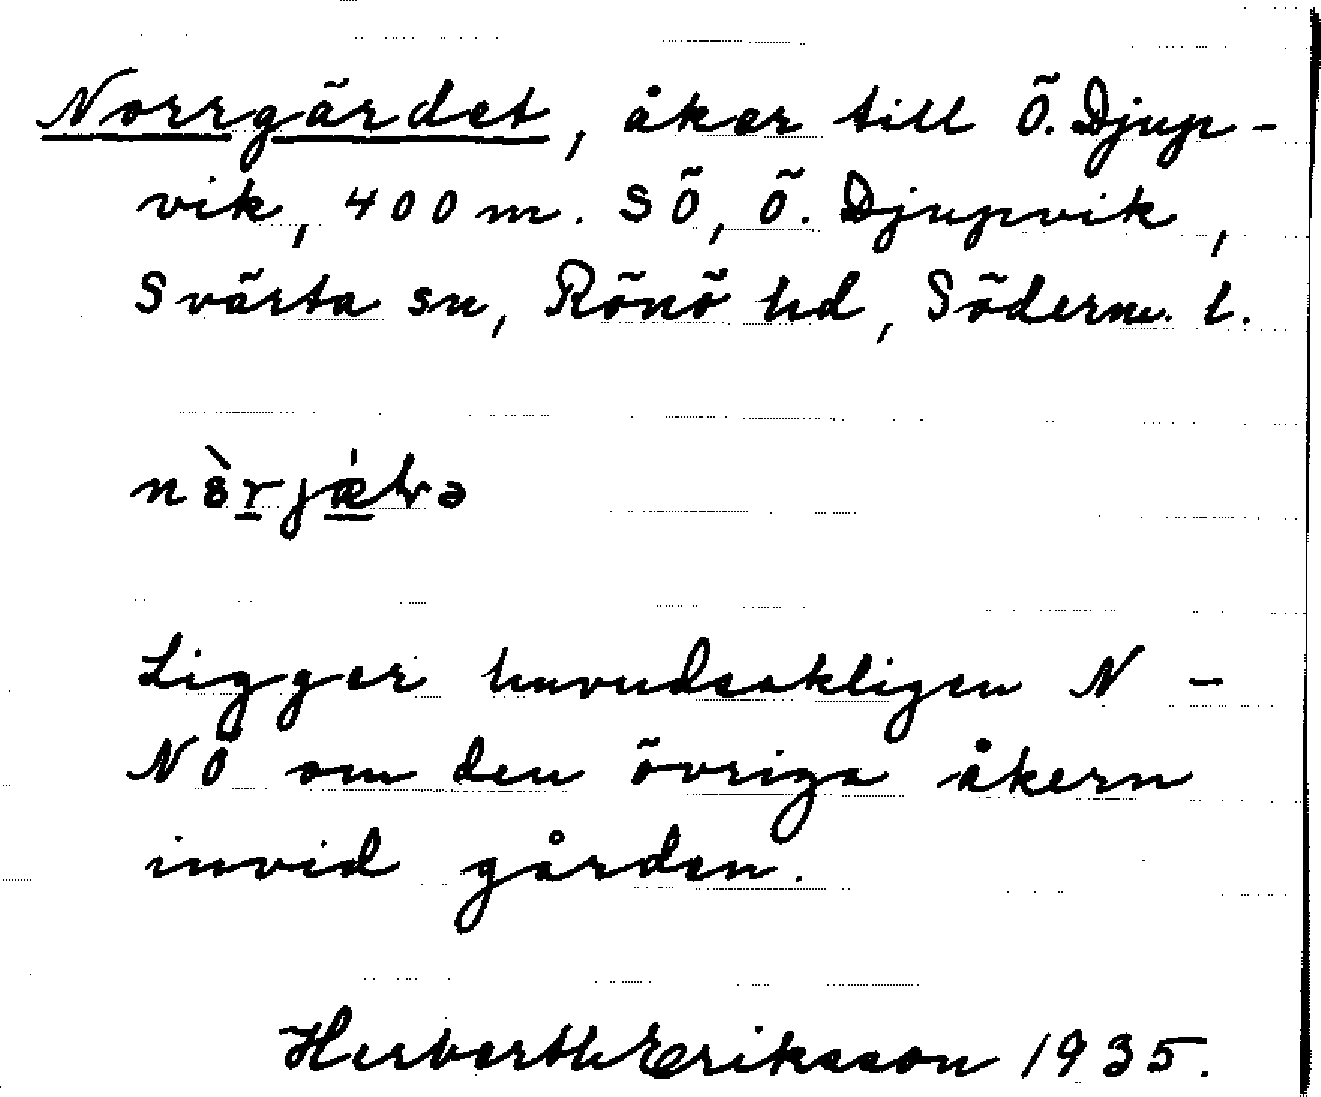 Norrgärdet, åker till Ö. Djup-
vik, 400 m. SÖ, Ö. Djupvik,
Svärta sn, Rönö hd, Söderm. l.
Ligger huvudsakligen N -
NÖ om den övriga åkern
invid gården.
Herberth Eriksson 1935.